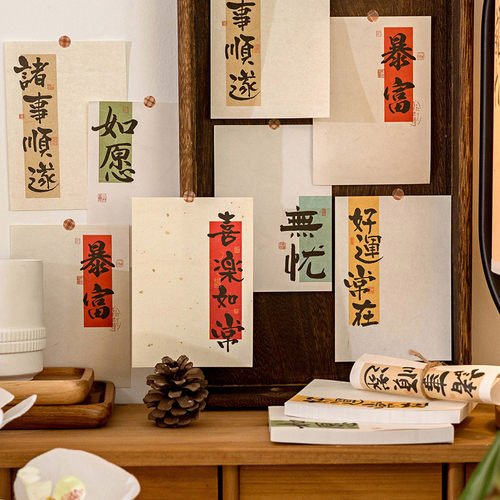 諸事順遂
如愿
暴富
喜樂如常
事順遂
無憂
暴富
好運常在
諸事順遂